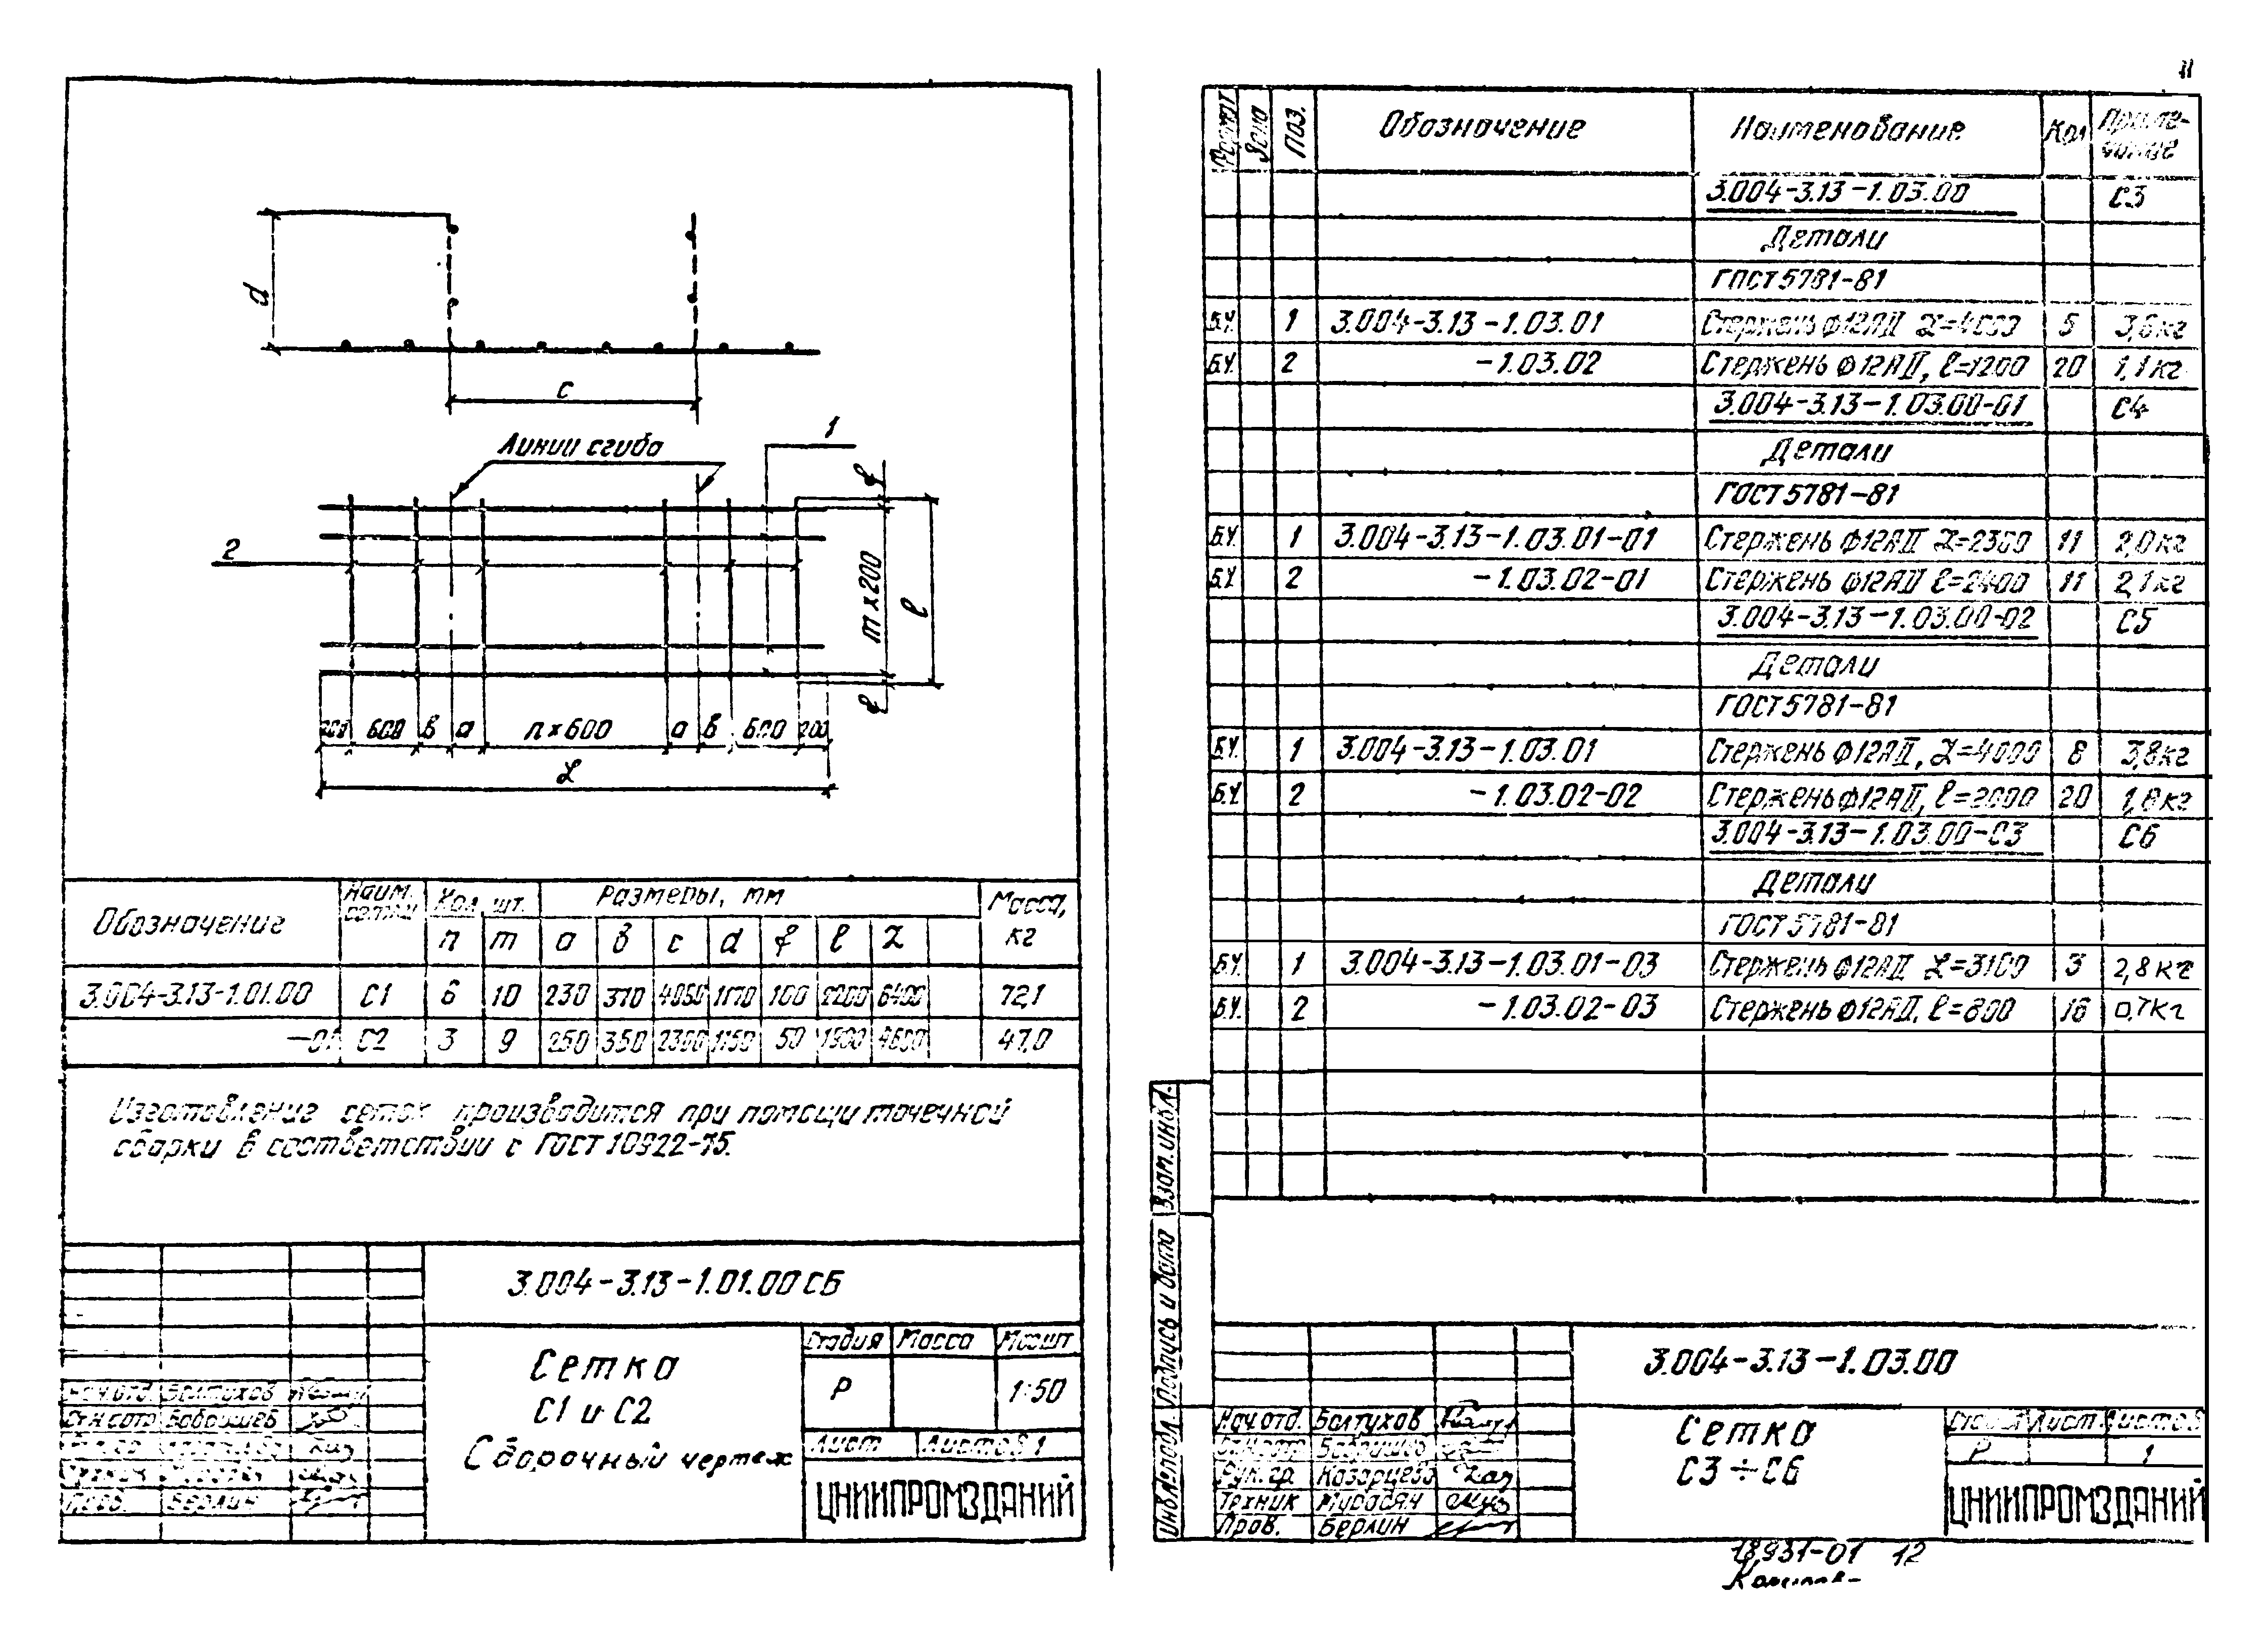 11
d
c
Линии сгиба
1
2
f
m×200
l
f
200 600 в а n×600 а в 600 200
L
Обозначение Наим. сетки Кол, шт. Размеры, мм Масса, кг
n m a в c d f l L
3.004-3.13-1.01.00 С1 6 10 230 370 4050 1170 100 2200 6400 72,1
-01 С2 3 9 250 350 2300 1150 50 1900 4600 47,0
Изготовление сеток производится при помощи точечной
сварки в соответствии с ГОСТ 10922-75.
3.004-3.13-1.01.00 СБ
Сетка
С1 и С2
Сборочный чертеж
Стадия Масса Масшт
Р 1:50
Лист Листов 1
ЦНИИПРОМЗДАНИЙ
Нач.отд. Балтухов
Бабанщев
Пров. Берлин
Формат Зона Поз. Обозначение Наименование Кол Примечание
3.004-3.13-1.03.00 С3
Детали
ГОСТ 5781-81
Б.Ч. 1 3.004-3.13-1.03.01 Стержень ф12АII L=4000 5 3,6кг
Б.Ч. 2 -1.03.02 Стержень ф12АII, l=1200 20 1,1кг
3.004-3.13-1.03.00-01 С4
Детали
ГОСТ 5781-81
Б.Ч. 1 3.004-3.13-1.03.01-01 Стержень ф12АII L=2300 11 2,0кг
Б.Ч. 2 -1.03.02-01 Стержень ф12АII l=2400 11 2,1кг
3.004-3.13-1.03.00-02 С5
Детали
ГОСТ 5781-81
Б.Ч. 1 3.004-3.13-1.03.01 Стержень ф12АII, L=4000 8 3,8кг
Б.Ч. 2 -1.03.02-02 Стержень ф12АII, l=2000 20 1,8кг
3.004-3.13-1.03.00-03 С6
Детали
ГОСТ 5781-81
Б.Ч. 1 3.004-3.13-1.03.01-03 Стержень ф12АII L=3100 3 2,8кг
Б.Ч. 2 -1.03.02-03 Стержень ф12АII, l=800 16 0,7кг
Инв.№подл. Подпись и дата Взам.инв.№
3.004-3.13-1.03.00
Сетка
С3÷С6
Стадия Лист Листов
Р 1
ЦНИИПРОМЗДАНИЙ
Нач.отд. Балтухов
Рук.гр. Казарцева
Техник Мурасян
Пров. Берлин
18931-01 12